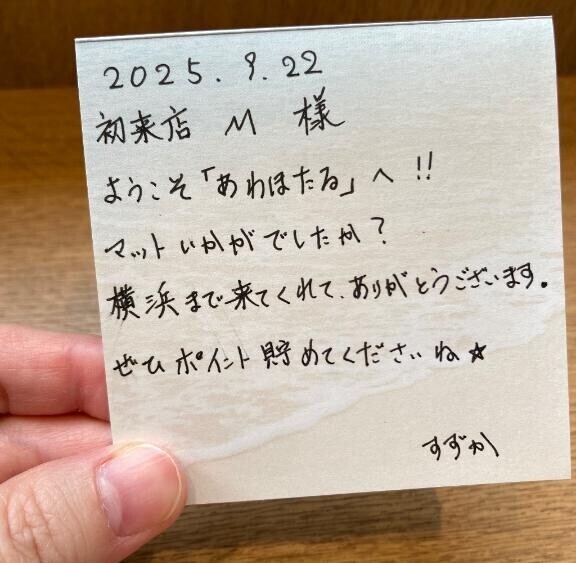 2025.9.22
初来店 M 様
ようこそ「あわほたる」へ!!
マットいかがでしたか?
横浜まで来てくれて、ありがとうございます。
ぜひポイント貯めてくださいね☆
すずか